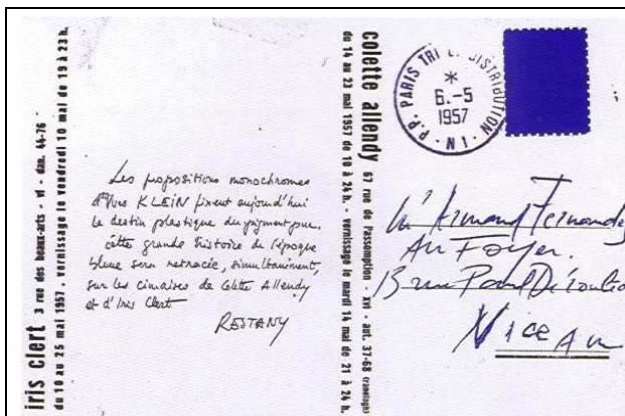 iris clert 3 rue des beaux-arts - vi - dan. 44-76
du 10 au 25 mai 1957 . vernissage le vendredi 10 mai de 19 à 23 h.
Les propositions monochromes
d'Yves KLEIN fixent aujourd'hui
le destin plastique du pigment pur.
Cette grande histoire de l'époque
bleue sera retracée, simultanément,
sur les cimaises de Colette Allendy
et d'Iris Clert
RESTANY
colette allendy 67 rue de l'assomption - xvi - aut. 37-68 (ranelagh)
du 14 au 23 mai 1957 de 10 à 24 h. - vernissage le mardi 14 mai de 21 à 24 h.
P.P. PARIS TRI DISTRIBUTION N1
*
6.-5
1957
Mr Armand Fernandez
Au Foyer.
13 rue Paul
NICE A M